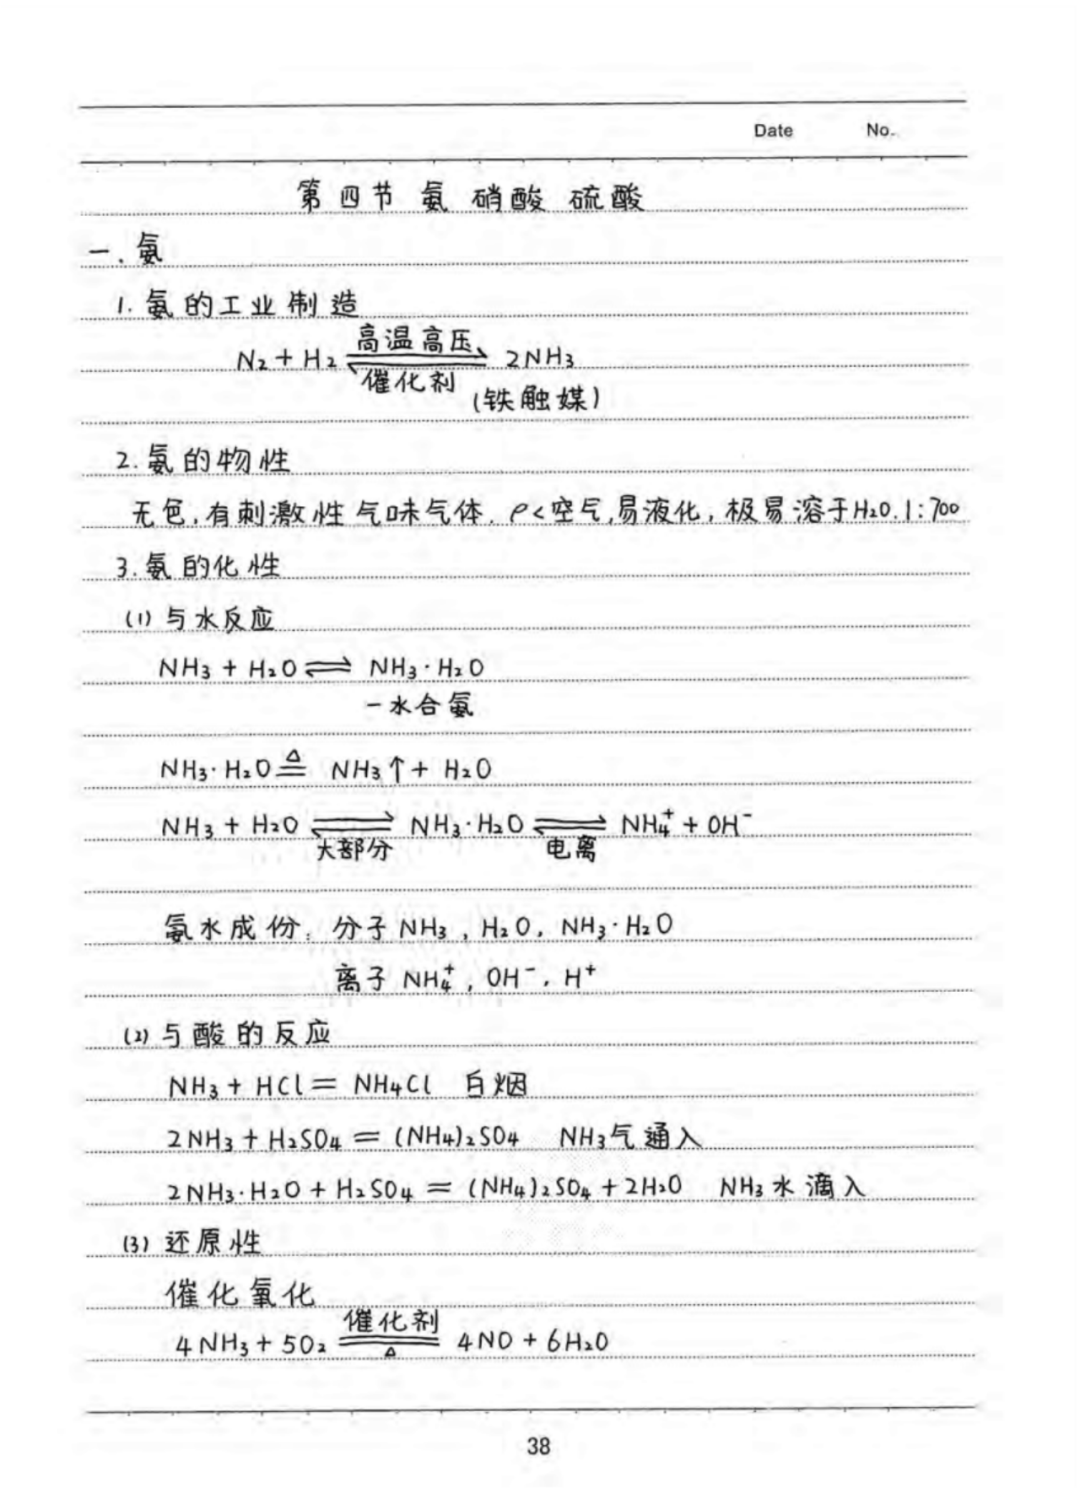 Date No.
第四节 氨 硝酸 硫酸
一、氨
1. 氨的工业制造
N₂ + H₂ ⇌ 2NH₃
高温高压
催化剂
(铁触媒)
2. 氨的物性
无色,有刺激性气味气体. ρ<空气,易液化,极易溶于H₂O.1:700
3. 氨的化性
(1) 与水反应
NH₃ + H₂O ⇌ NH₃·H₂O
一水合氨
NH₃·H₂O ≜ NH₃↑ + H₂O
NH₃ + H₂O ⇌ NH₃·H₂O ⇌ NH₄⁺ + OH⁻
大部分 电离
氨水成份: 分子 NH₃, H₂O, NH₃·H₂O
离子 NH₄⁺, OH⁻, H⁺
(2) 与酸的反应
NH₃ + HCl = NH₄Cl 白烟
2NH₃ + H₂SO₄ = (NH₄)₂SO₄ NH₃气通入
2NH₃·H₂O + H₂SO₄ = (NH₄)₂SO₄ + 2H₂O NH₃水滴入
(3) 还原性
催化氧化
催化剂
4NH₃ + 5O₂ = 4NO + 6H₂O
△
38